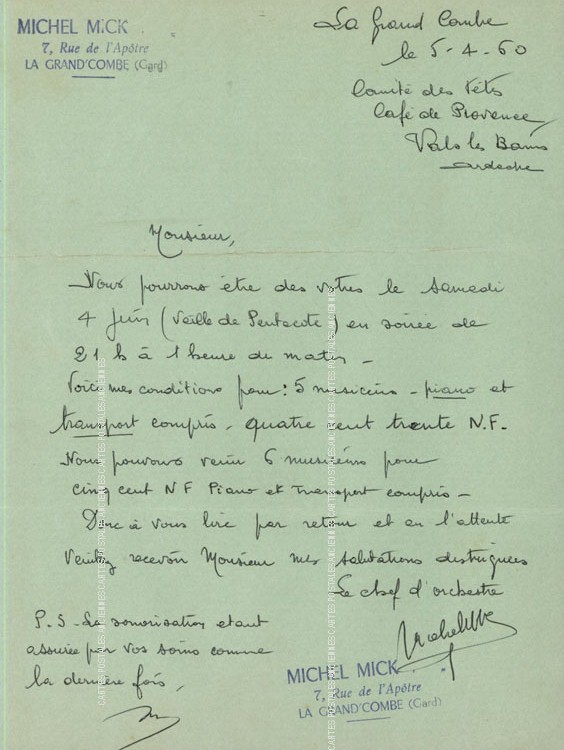 MICHEL MICK
7, Rue de l'Apôtre
LA GRAND'COMBE (Gard)
La Grand Combe
le 5-4-60
Comité des Fêtes
Café de Provence
Vals les Bains
Ardèche
Monsieur,
Nous pourrons être des vôtres le samedi
4 Juin (Veille de Pentecote) en soirée de
21 h à 1 heure du matin -
Voici mes conditions pour : 5 musiciens - piano et
transport compris - quatre cent trente N.F -
Nous pouvons venir 6 musiciens pour
cinq cent N F Piano et Transport compris -
Donc à vous lire par retour et en l'attente
Veuillez recevoir Monsieur mes salutations distinguées
Le chef d'orchestre
P.S - La sonorisation etant
assurée par vos soins comme
la dernière fois,
MICHEL MICK
7, Rue de l'Apôtre
LA GRAND'COMBE (Gard)
CARTES POSTALES ANCIENNES CARTES POSTALES ANCIENNES CARTES POSTALES ANCIENNES
CARTES POSTALES ANCIENNES CARTES POSTALES ANCIENNES CARTES POSTALES ANCIENNES